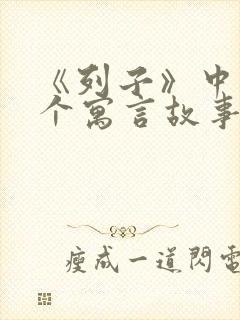 《列子》中
个寓言故事
瘦成一道閃電